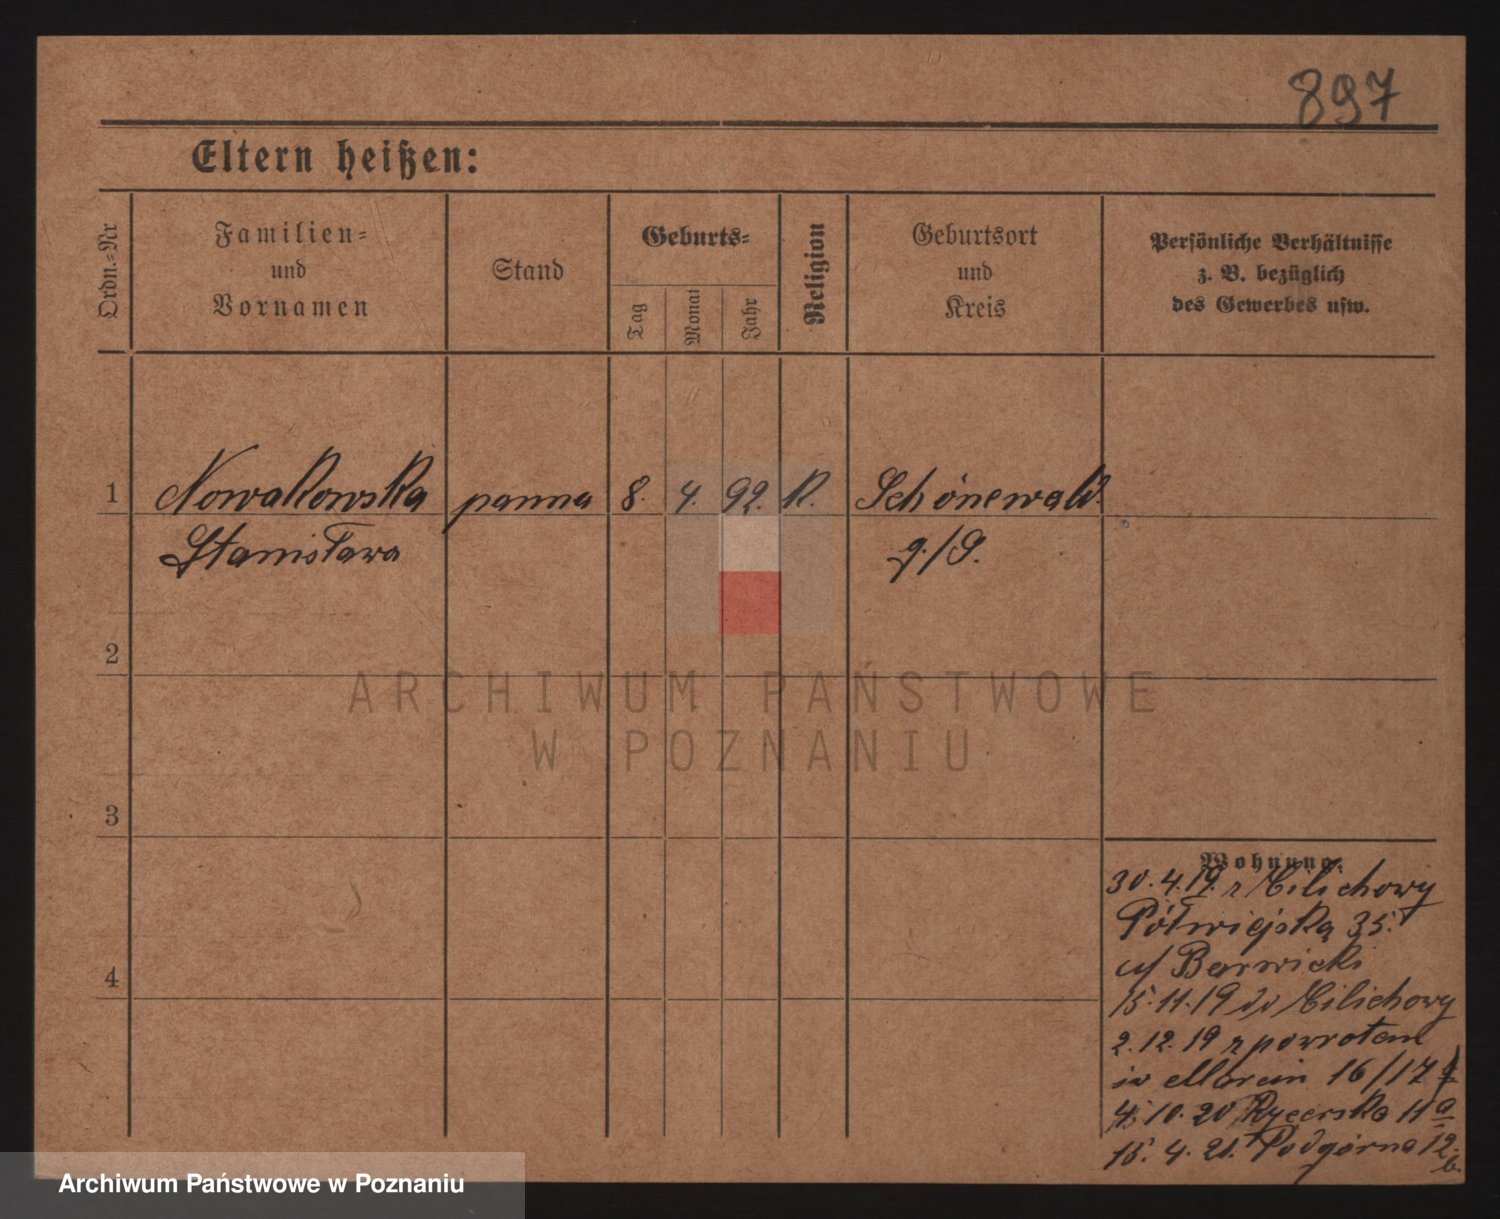 897
Eltern heißen:
Ordn.-Nr
Familien-
und
Vornamen
Stand
Geburts-
Tag
Monat
Jahr
Religion
Geburtsort
und
Kreis
Persönliche Verhältnisse
z. B. bezüglich
des Gewerbes usw.
1
Nowakowska panna 8. 4. 92. K. Schönewald
Stanisława g./S.
2
ARCHIWUM PAŃSTWOWE
W POZNANIU
3
4
Wohnung:
30.4.19. z
Półwiejska 35.
u/ Barwicki
15.11.19 do
2.12.19 z powrotem
św Marcin 16/17
4.10.20 Rycerska 11a
15.4.21. Podgórna 12
b.
Archiwum Państwowe w Poznaniu